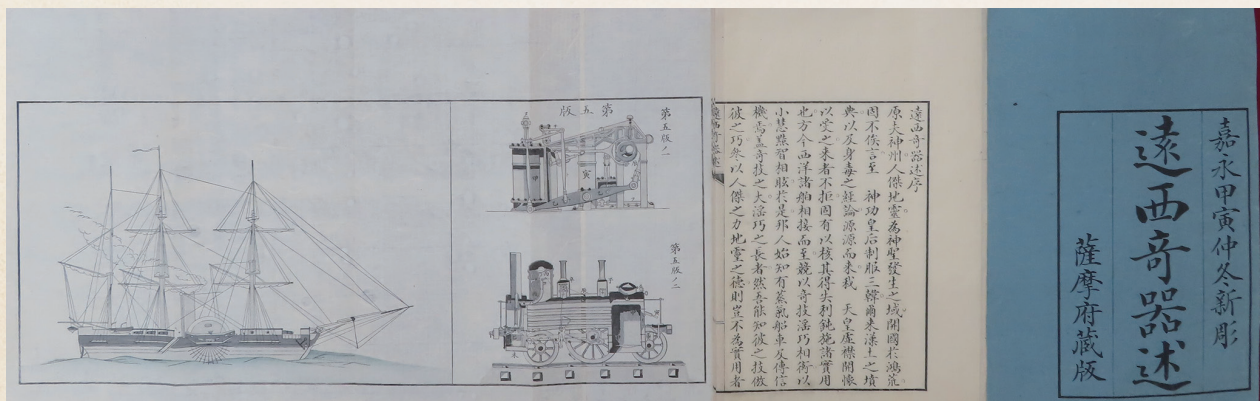 嘉永甲寅仲冬新彫
遠西奇器述
薩摩府藏版
遠西奇器述序
原夫神州人傑地靈為神聖發生之域開國於鴻荒
固不俟言至　神功皇后制服三韓爾來漢土之墳
典以及身毒之經論源源而來我　天皇虛襟開懷
以受之来者不拒固有以核其得失利鈍施諸實用
也方今西洋諸舶相接而至競以奇技淫巧相衒以
小慧黠智相眩於是邦人始知有蒸氣船車及傳信
機焉蓋奇技之大淫巧之長者然吾能知彼之技倣
彼之巧矣以人傑之力地靈之德則豈不為實用者
第五版
第五版ノ一
寅
第五版ノ二